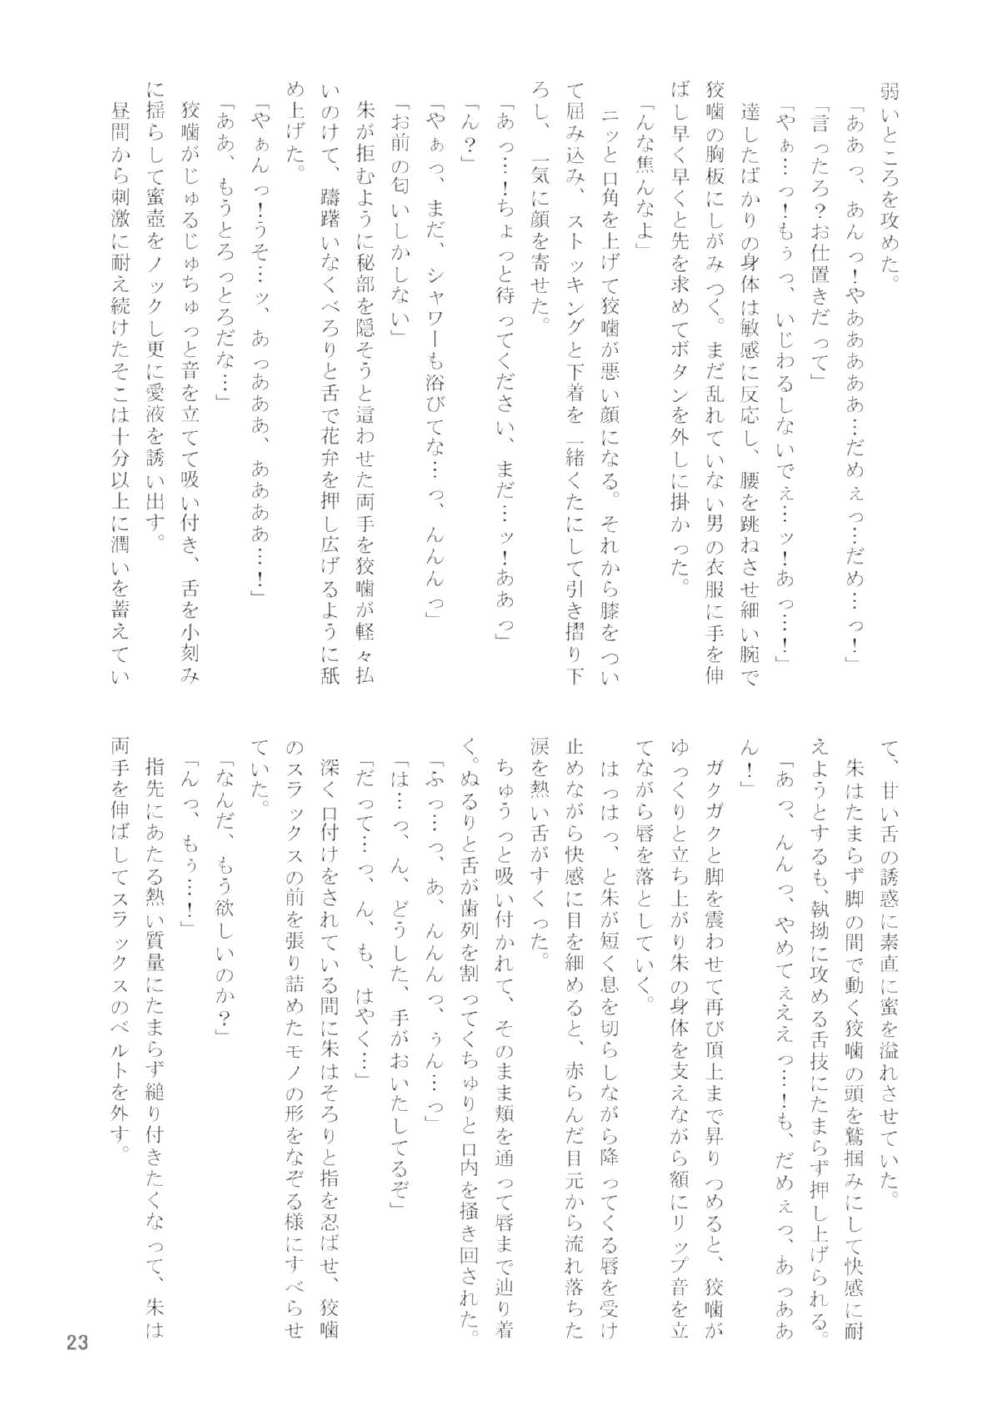 弱いところを攻めた。
「ああっ、あんっ！やああああ…だめぇっ…だめ…っ！」
「言ったろ？お仕置きだって」
「やぁ…っ！もぅっ、いじわるしないでぇ…ッ！あっ…！」
達したばかりの身体は敏感に反応し、腰を跳ねさせ細い腕で
狡噛の胸板にしがみつく。まだ乱れていない男の衣服に手を伸
ばし早く早くと先を求めてボタンを外しに掛かった。
「んな焦んなよ」
ニッと口角を上げて狡噛が悪い顔になる。それから膝をつい
て屈み込み、ストッキングと下着を一緒くたにして引き摺り下
ろし、一気に顔を寄せた。
「あっ…！ちょっと待ってください、まだ…ッ！ああっ」
「ん？」
「やぁっ、まだ、シャワーも浴びてな…っ、んんんっ」
「お前の匂いしかしない」
朱が拒むように秘部を隠そうと這わせた両手を狡噛が軽々払
いのけて、躊躇いなくべろりと舌で花弁を押し広げるように舐
め上げた。
「やぁんっ！うそ…ッ、あっあああ、ああああ…！」
「ああ、もうとろっとろだな…」
狡噛がじゅるじゅちゅっと音を立てて吸い付き、舌を小刻み
に揺らして蜜壺をノックし更に愛液を誘い出す。
昼間から刺激に耐え続けたそこは十分以上に潤いを蓄えてい
て、甘い舌の誘惑に素直に蜜を溢れさせていた。
朱はたまらず脚の間で動く狡噛の頭を鷲掴みにして快感に耐
えようとするも、執拗に攻める舌技にたまらず押し上げられる。
「あっ、んんっ、やめてぇええっ…！も、だめぇっ、あっああ
ん！」
ガクガクと脚を震わせて再び頂上まで昇りつめると、狡噛が
ゆっくりと立ち上がり朱の身体を支えながら額にリップ音を立
てながら唇を落としていく。
はっはっ、と朱が短く息を切らしながら降ってくる唇を受け
止めながら快感に目を細めると、赤らんだ目元から流れ落ちた
涙を熱い舌がすくった。
ちゅうっと吸い付かれて、そのまま頬を通って唇まで辿り着
く。ぬるりと舌が歯列を割ってくちゅりと口内を掻き回された。
「ふっ…っ、あ、んんんっ、ぅん…っ」
「は…っ、ん、どうした、手がおいたしてるぞ」
「だって…っ、ん、も、はやく…」
深く口付けをされている間に朱はそろりと指を忍ばせ、狡噛
のスラックスの前を張り詰めたモノの形をなぞる様にすべらせ
ていた。
「なんだ、もう欲しいのか？」
「んっ、もぅ…！」
指先にあたる熱い質量にたまらず縋り付きたくなって、朱は
両手を伸ばしてスラックスのベルトを外す。
23